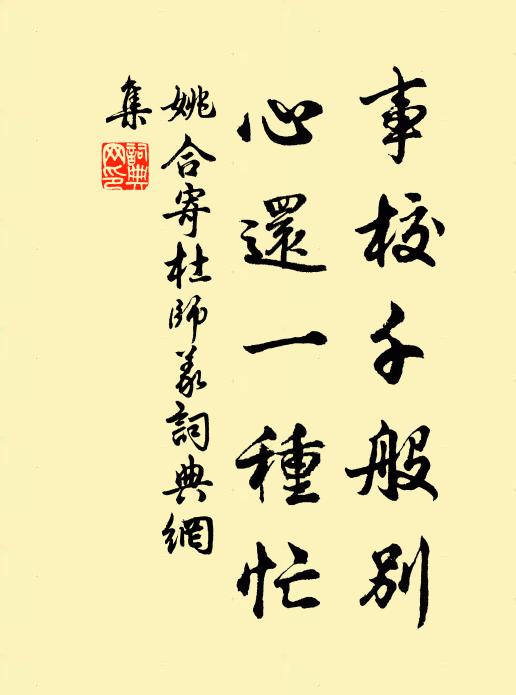 事校千般別
心還一種忙
姚合寄杜師義詞典網
集
詞典網印